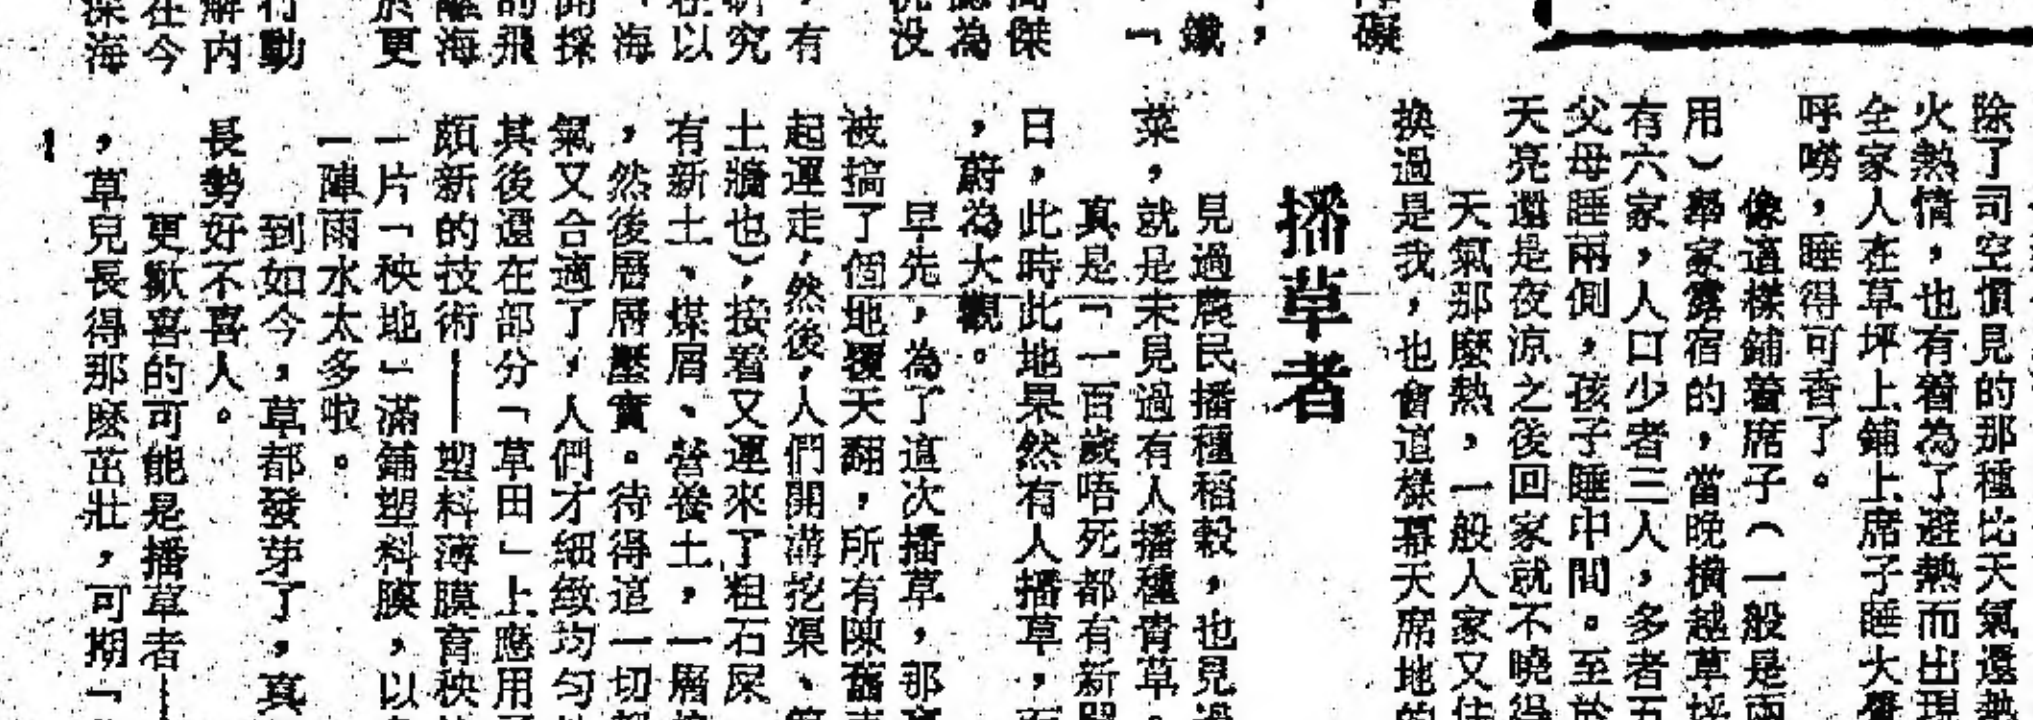 礙
，
鐵
「
傑
為
没
有
究
以
海
採
飛
海
更
動
内
今
海
除了司空慣見的那種比天氣還熱
火熱情，也有着為了避熱而出現
全家人在草坪上鋪上席子睡大聲
呼嘮，睡得可香了。
像這樣鋪着席子（一般是兩
用）舉家露宿的，當晚橫越草坪
有六家，人口少者三人，多者五
父母睡兩側，孩子睡中間。至於
天亮還是夜涼之後回家就不曉得
天氣那麼熱，一般人家又住
換過是我，也會這樣幕天席地的
播草者
見過農民播種稻穀，也見過
菜，就是未見過有人播種青草。
真是「一百歲唔死都有新聞
日，此時此地果然有人播草，而
，蔚為大觀。
早先，為了這次播草，那
被搞了個地覆天翻，所有陳舊
起運走，然後，人們開溝挖渠、
土牆也），按着又運來了粗石屎
有新土、煤屑、營養土，一層
，然後層層壓實。待得這一切
氣又合適了，人們才細緻均勻
其後還在部分「草田」上應用
頗新的技術——塑料薄膜育秧
一片「秧地」滿鋪塑料膜，以
一陣雨水太多啦。
到如今，草都發芽了，真
長勢好不喜人。
更歡喜的可能是播草者—
，草兒長得那麼茁壯，可期「